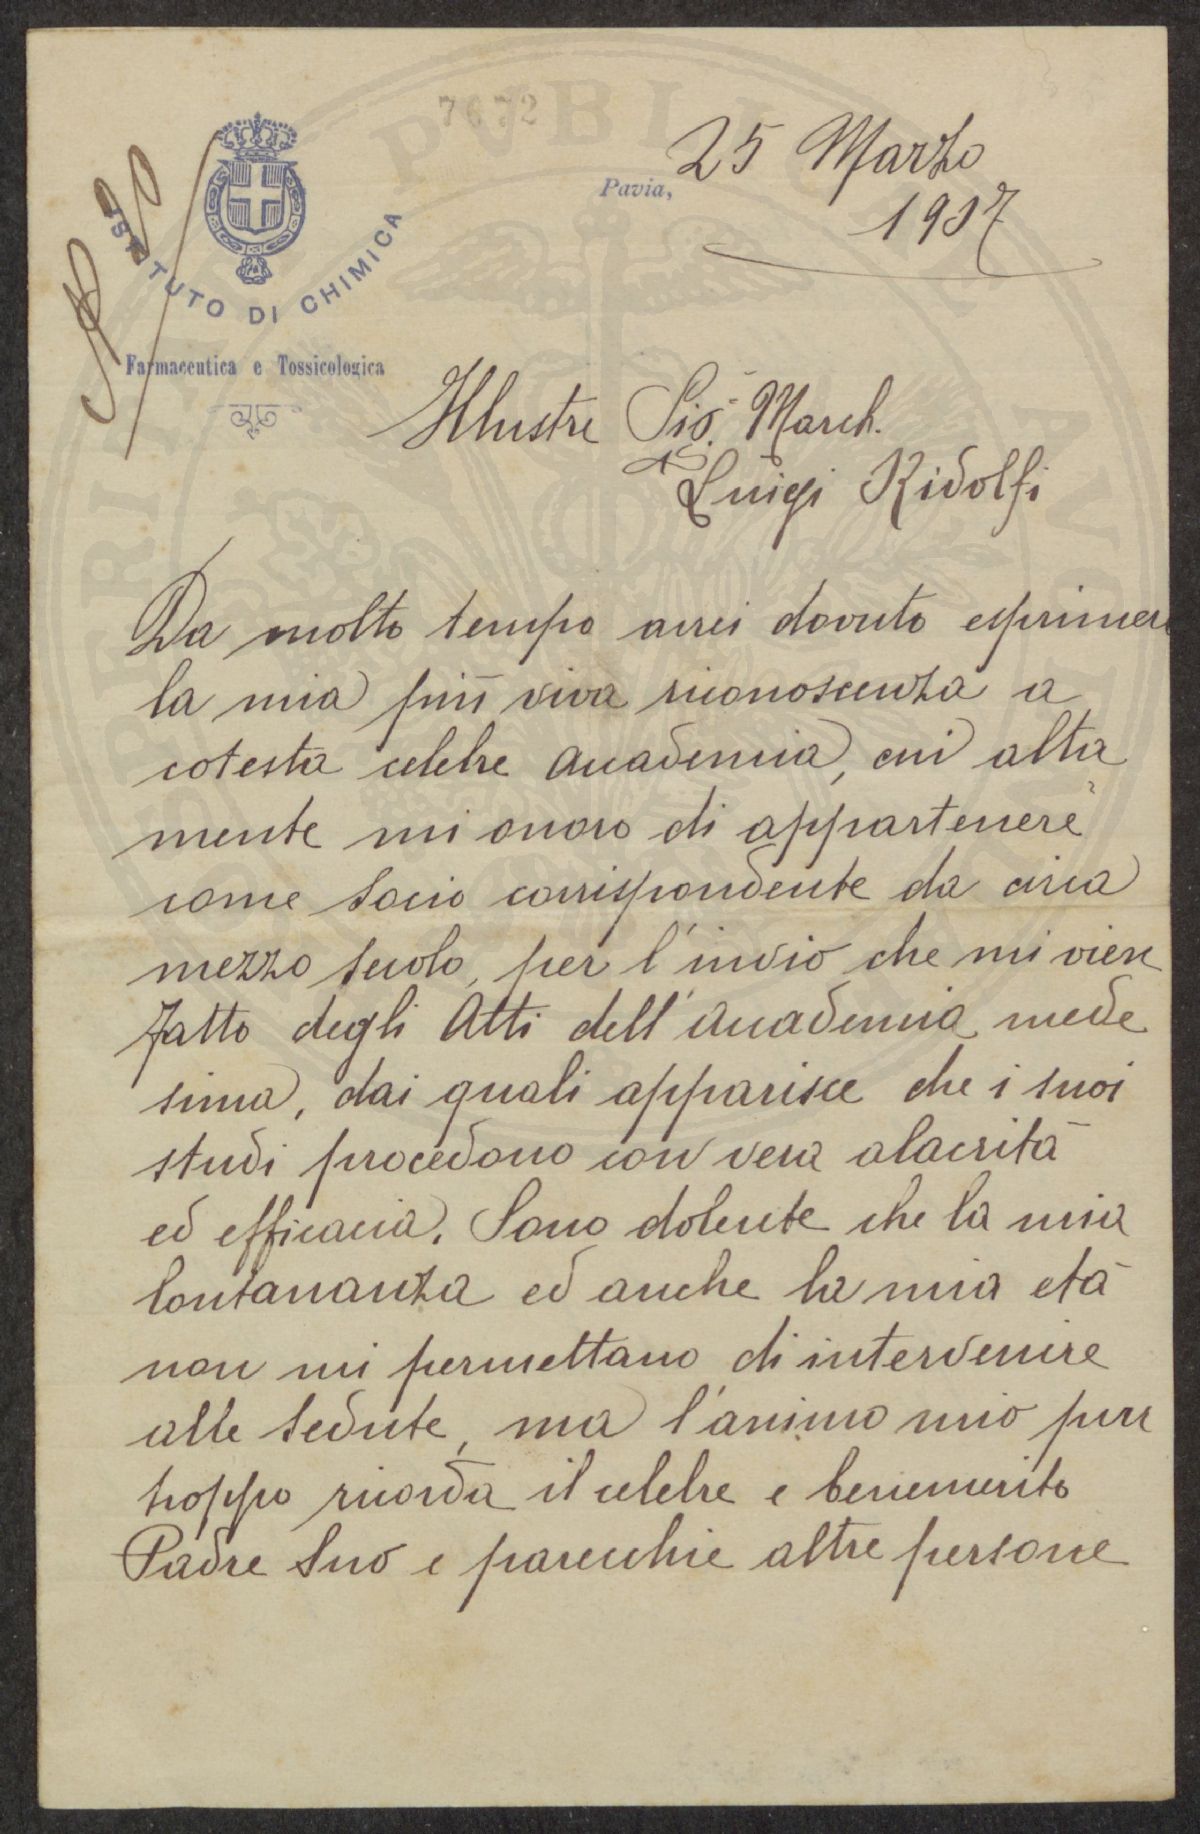 7672
25 Marzo
Pavia,
1907
ISTITUTO DI CHIMICA
Farmaceutica e Tossicologica
Illustre Sig. March.
Luigi Ridolfi
Da molto tempo avrei dovuto esprimere
la mia più viva riconoscenza a
cotesta celebre Accademia, cui alta
mente mi onoro di appartenere
come Socio corrispondente da circa
mezzo secolo, per l'invio che mi viene
fatto degli Atti dell'Accademia mede
sima, dai quali apparisce che i suoi
studi procedono con vera alacrità
ed efficacia. Sono dolente che la mia
lontananza ed anche la mia età
non mi permettano di intervenire
alle Sedute, ma l'animo mio pur
troppo ricorda il celebre e benemerito
Padre Suo e parecchie altre persone